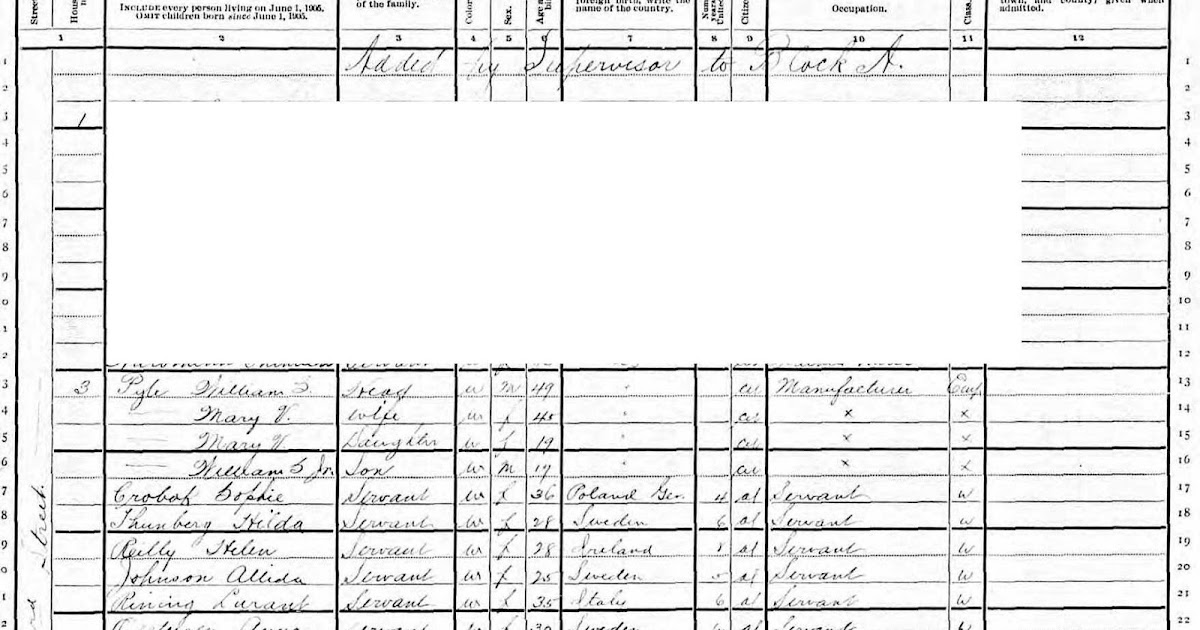 INCLUDE every person living on June 1, 1905.
OMIT children born since June 1, 1905.
of the family.
Sex.
foreign birth, write the
name of the country.
Occupation.
Class.
town, and county, given when
admitted.
1 2 3 4 5 6 7 8 9 10 11 12
1 Added by Supervisor to Block A. 1
2 2
3 1 3
4 4
5 5
6 6
7 7
8 8
9 9
0 10
1 11
2 Servant 12
3 3 Pyle William S. Head w m 49 " cit Manufacturer Emp 13
4 — Mary V. Wife w f 45 " cit x x 14
5 — Mary W Daughter w f 19 " cit x x 15
6 — William S Jr. Son w m 17 " cit x x 16
7 Sophie Servant w f 36 Poland Ger. 4 al Servant w 17
8 Thunberg Hilda Servant w f 28 Sweden 6 al Servant w 18
9 Reilly Helen Servant w f 28 Ireland 8 al Servant w 19
0 Johnson Allida Servant w f 25 Sweden 5 al Servant w 20
1 Servant w f 35 Italy 6 al Servant w 21
2 Anna Servant w f 30 Sweden al Servant w 22
Street